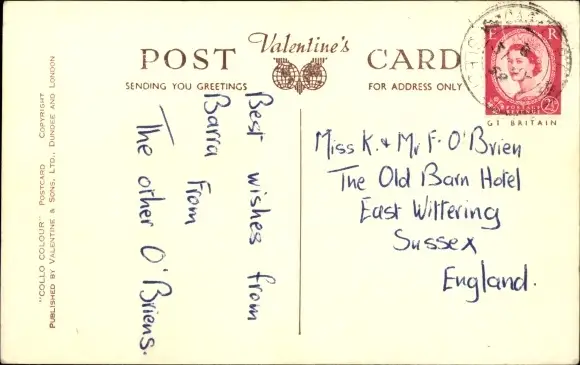 POST Valentine's CARD
SENDING YOU GREETINGS FOR ADDRESS ONLY
"COLLO COLOUR" POSTCARD COPYRIGHT
PUBLISHED BY VALENTINE & SONS, LTD., DUNDEE AND LONDON
Best wishes from
Barra From
The other O'Briens.
E R
2½
GT BRITAIN
Miss K. & Mr F. O'Brien
The Old Barn Hotel
East Wittering
Sussex
England.